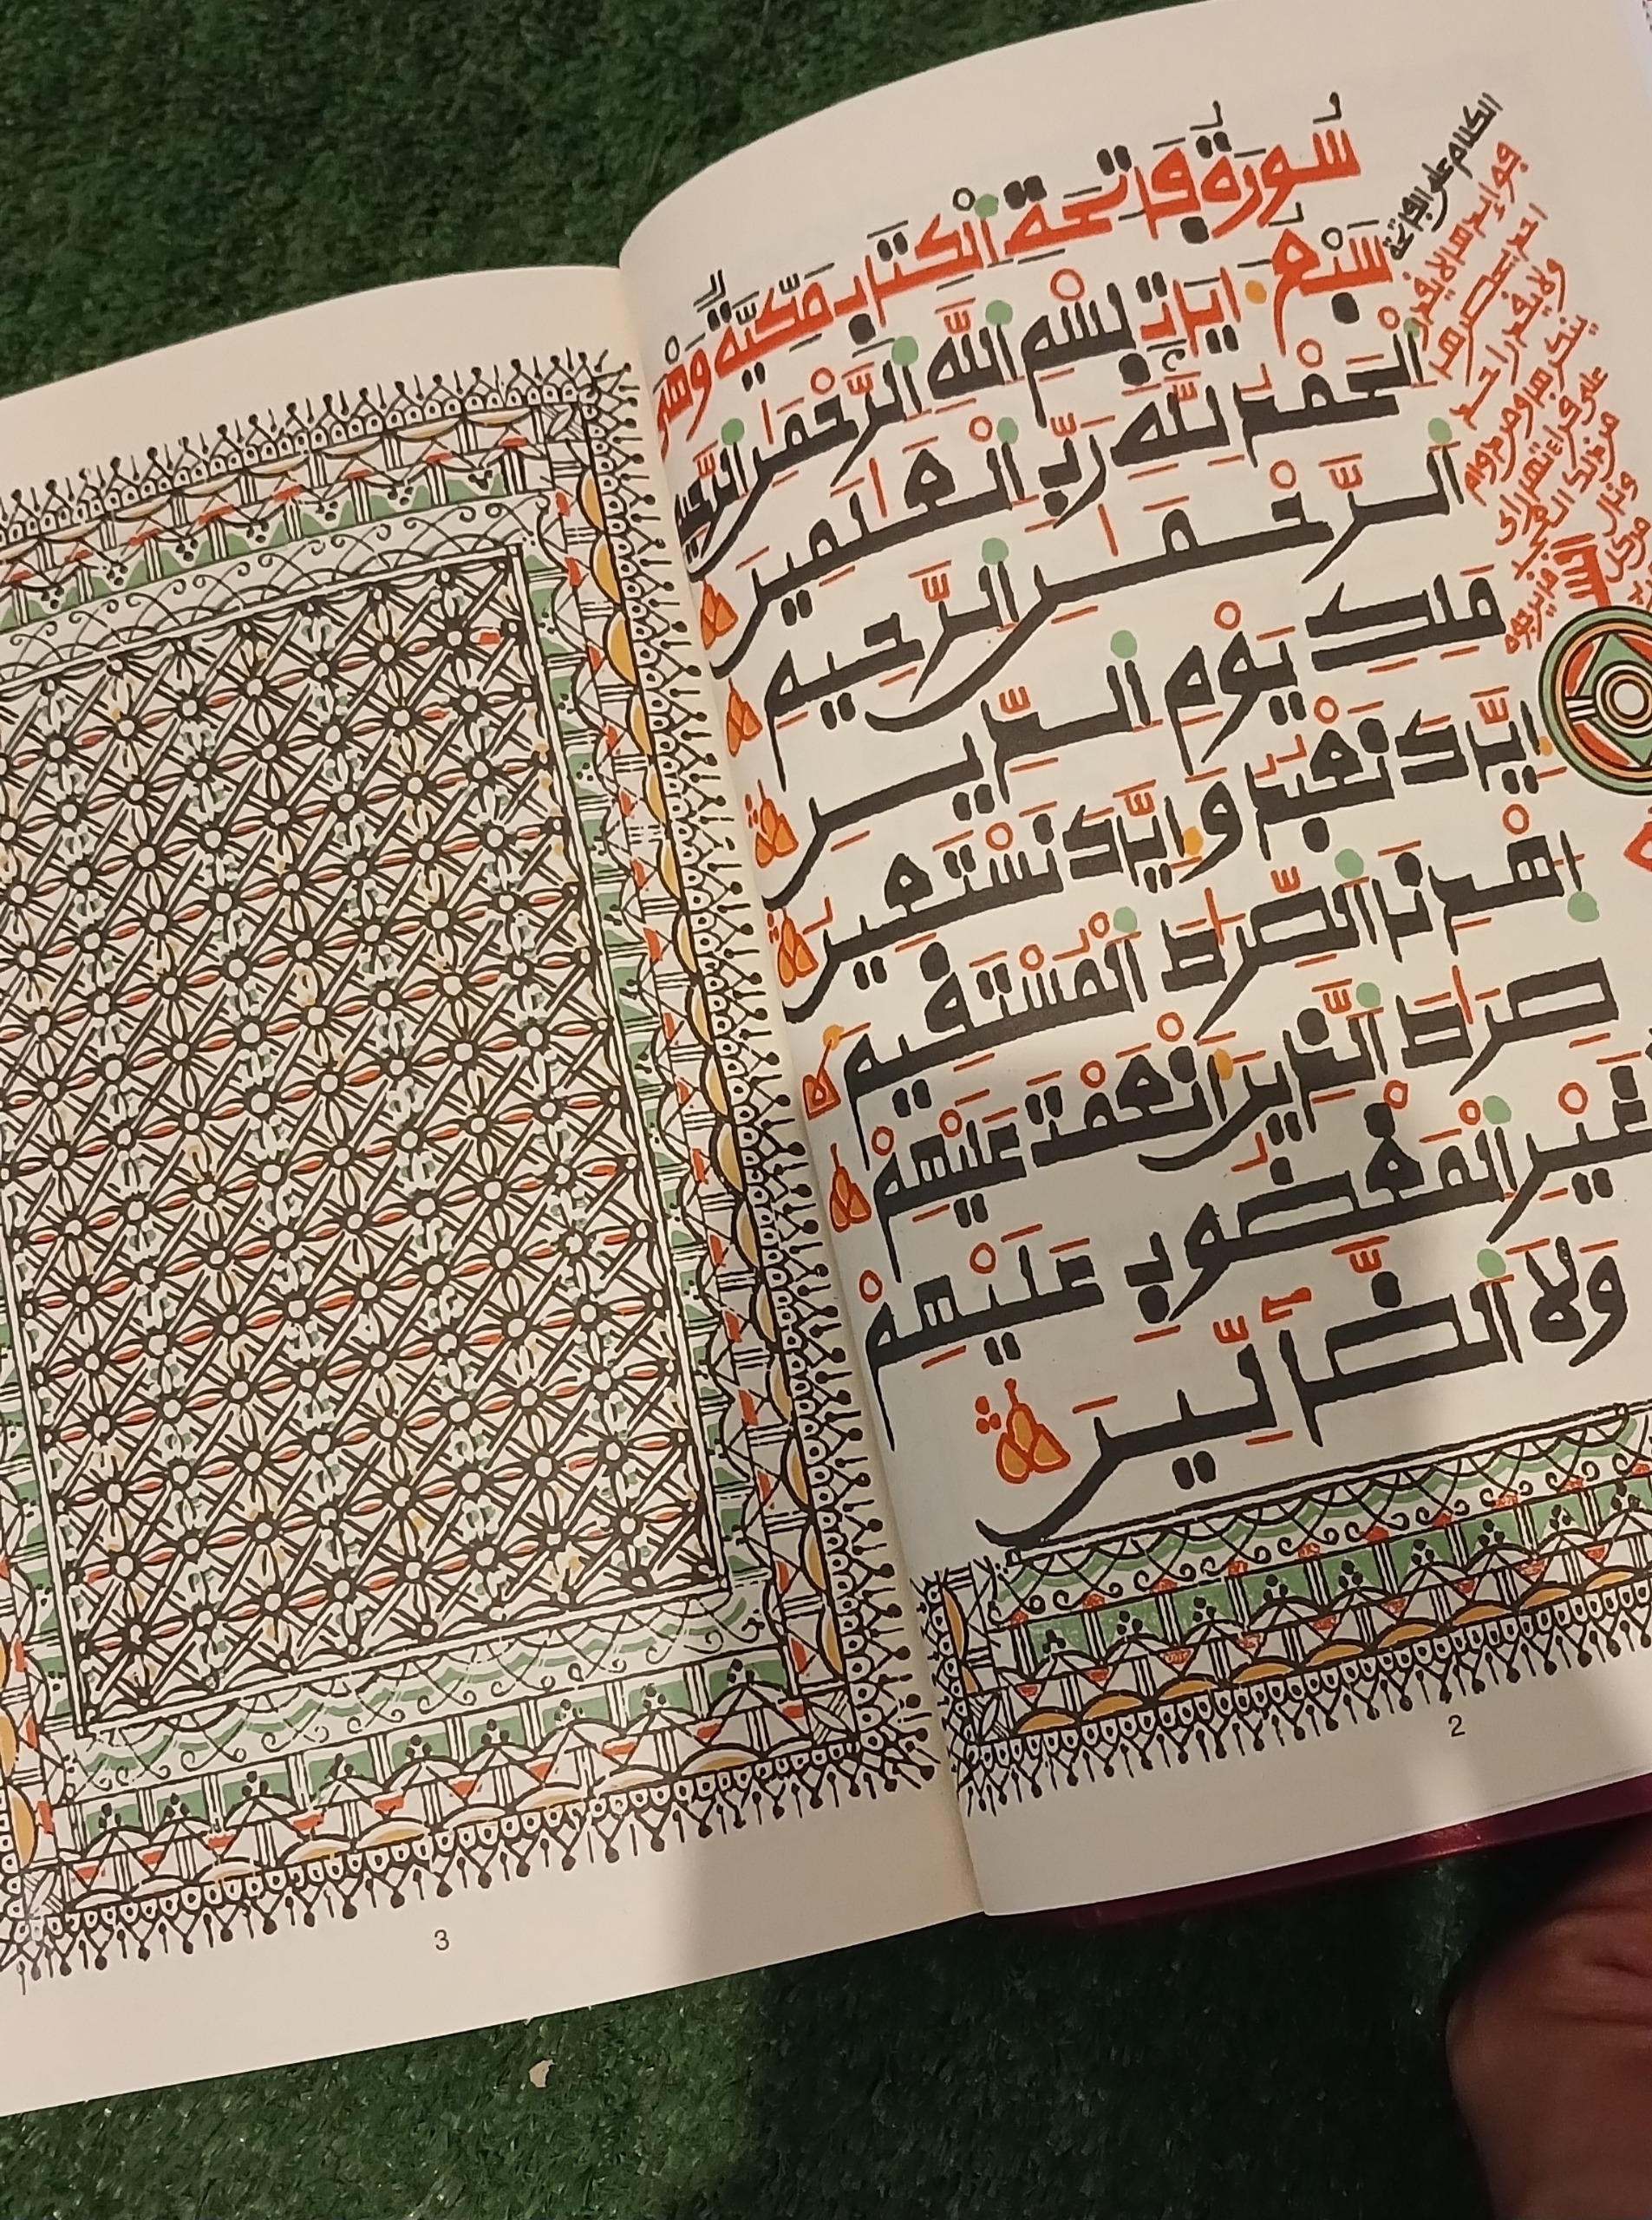 سُورَةُ فَاتِحَةِ اِلْكِتَابِ مَكِّيَّةٌ وَهْيَ
سَبْعُ ءَايَاتٍ بِسْمِ اِللَّهِ اِلرَّحْمَٰنِ اِلرَّحِيمِ
اَلْحَمْدُ لِلَّهِ رَبِّ اِلْعَٰلَمِينَ
اَلرَّحْمَٰنِ اِلرَّحِيمِ
مَلِكِ يَوْمِ اِلدِّينِ
إِيَّاكَ نَعْبُدُ وَإِيَّاكَ نَسْتَعِينُ
اِهْدِنَا اَلصِّرَٰطَ اَلْمُسْتَقِيمَ
صِرَٰطَ اَلَّذِينَ أَنْعَمْتَ عَلَيْهِمْ
غَيْرِ اِلْمَغْضُوبِ عَلَيْهِمْ
وَلَا اَلضَّآلِّينَ
الكلام على الفاتحة
2
3